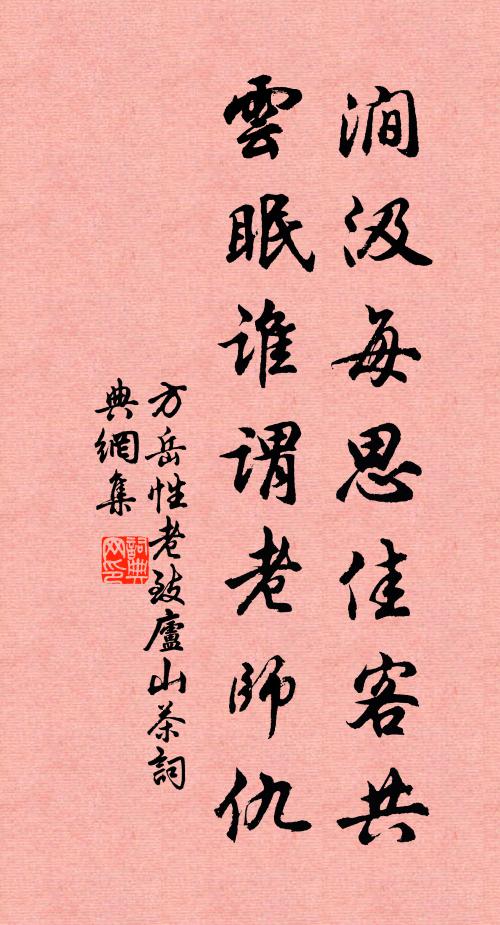 澗汲每思佳客共
雲眠誰謂老師仇
方岳性老致廬山茶詞
典網集
詞典网印